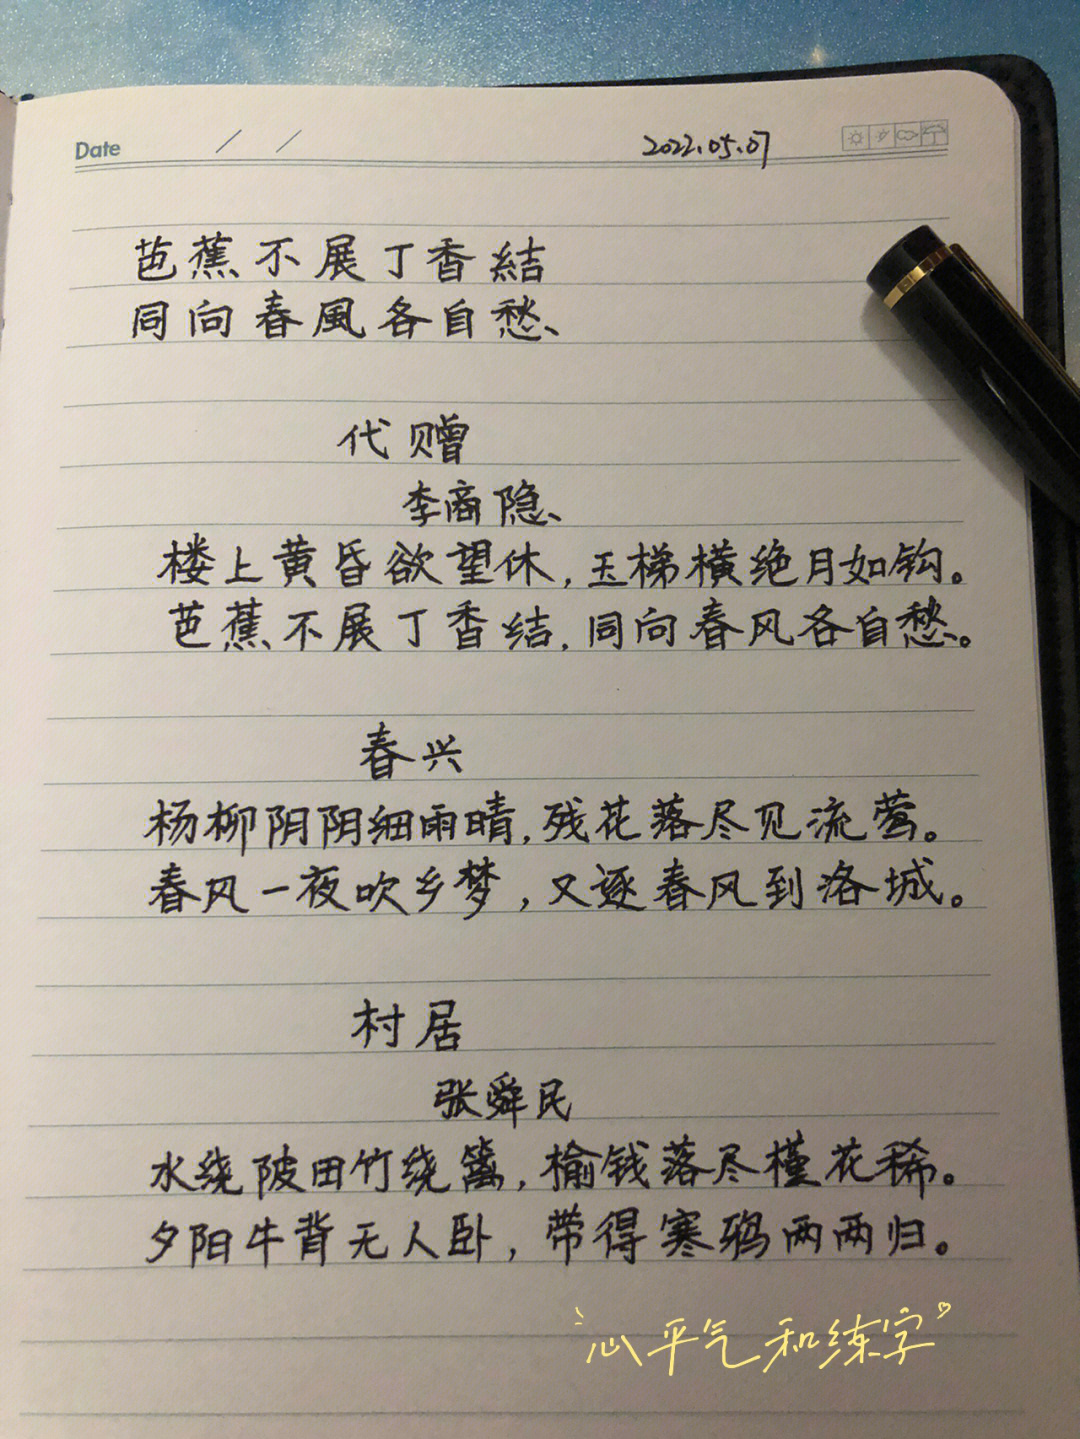 Date / /
2022.05.07
芭蕉不展丁香結
同向春風各自愁、
代赠
李商隐、
楼上黄昏欲望休,玉梯横绝月如钩。
芭蕉不展丁香结,同向春风各自愁。
春兴
杨柳阴阴细雨晴,残花落尽见流莺。
春风一夜吹乡梦,又逐春风到洛城。
村居
张舜民
水绕陂田竹绕篱,榆钱落尽槿花稀。
夕阳牛背无人卧,带得寒鸦两两归。
心平气和练字